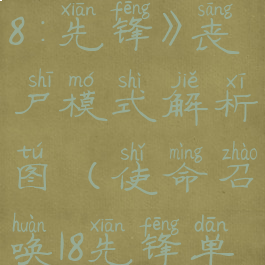 xiān fēng sāng
8：先锋》丧
shī mó shì jiě xī
尸模式解析
tú shǐ mìng zhào
图（使命召
huàn xiān fēng dān
唤18先锋单